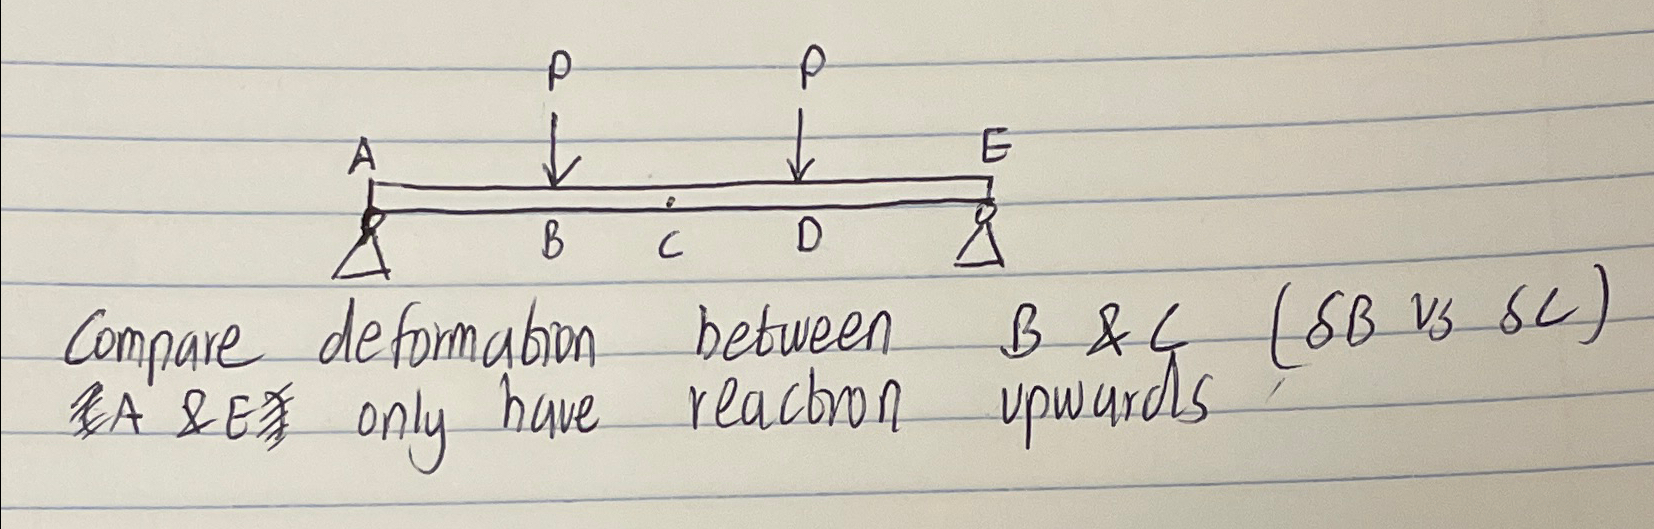 P P
A E
B C D
Compare deformation between B & C (δB vs δC)
A & E only have reaction upwards